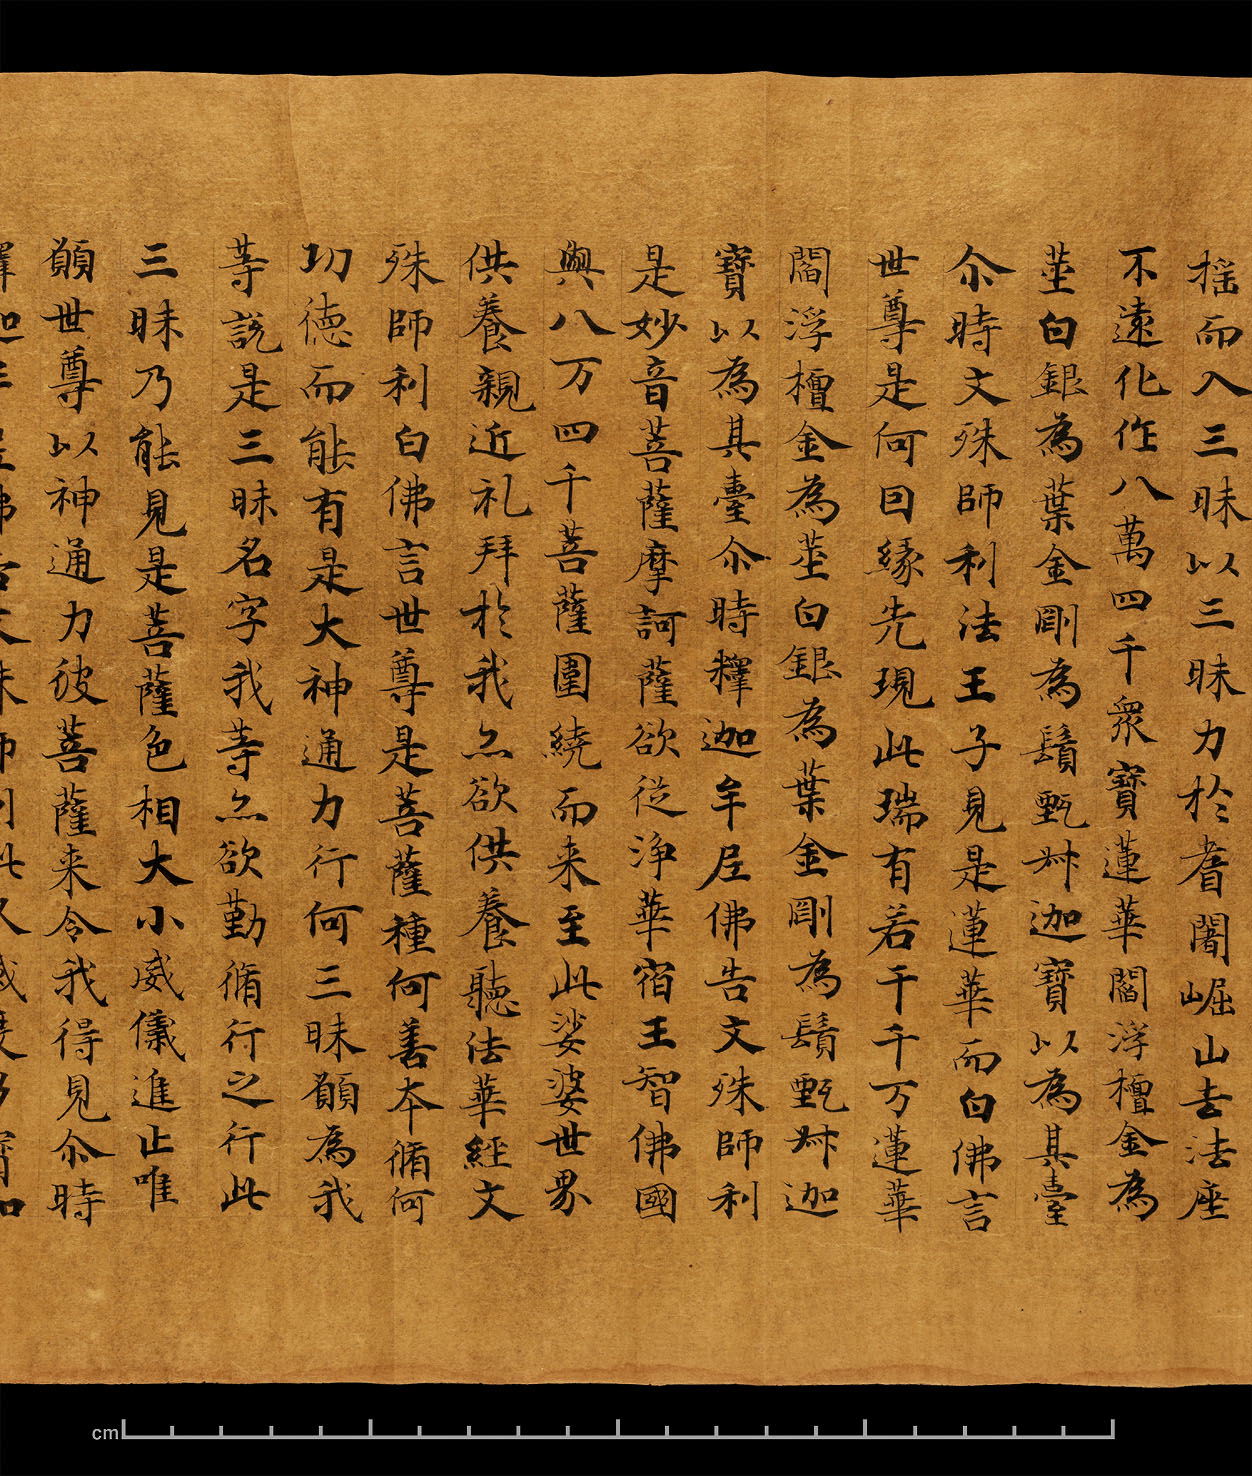 揺而入三昧以三昧力於耆闍崛山去法座
不遠化作八萬四千衆寶蓮華閻浮檀金為
莖白銀為葉金剛為鬚甄叔迦寶以為其臺
尒時文殊師利法王子見是蓮華而白佛言
世尊是何因緣先現此瑞有若干千万蓮華
閻浮檀金為莖白銀為葉金剛為鬚甄叔迦
寶以為其臺尒時釋迦牟尼佛告文殊師利
是妙音菩薩摩訶薩欲從淨華宿王智佛國
與八万四千菩薩圍繞而来至此娑婆世界
供養親近礼拜於我亦欲供養聽法華經文
殊師利白佛言世尊是菩薩種何善本脩何
功德而能有是大神通力行何三昧願為我
等說是三昧名字我等亦欲勤脩行之行此
三昧乃能見是菩薩色相大小威儀進止唯
願世尊以神通力彼菩薩来令我得見尒時
cm